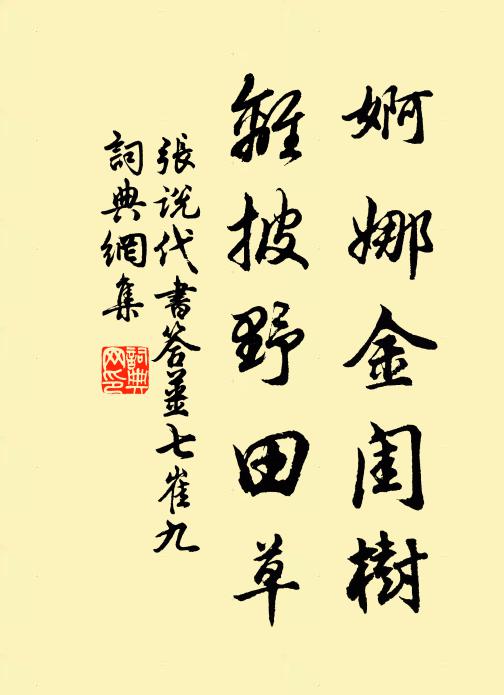 婀娜金闺樹
離披野田草
張說代書答姜七崔九
詞典網集
詞典网印